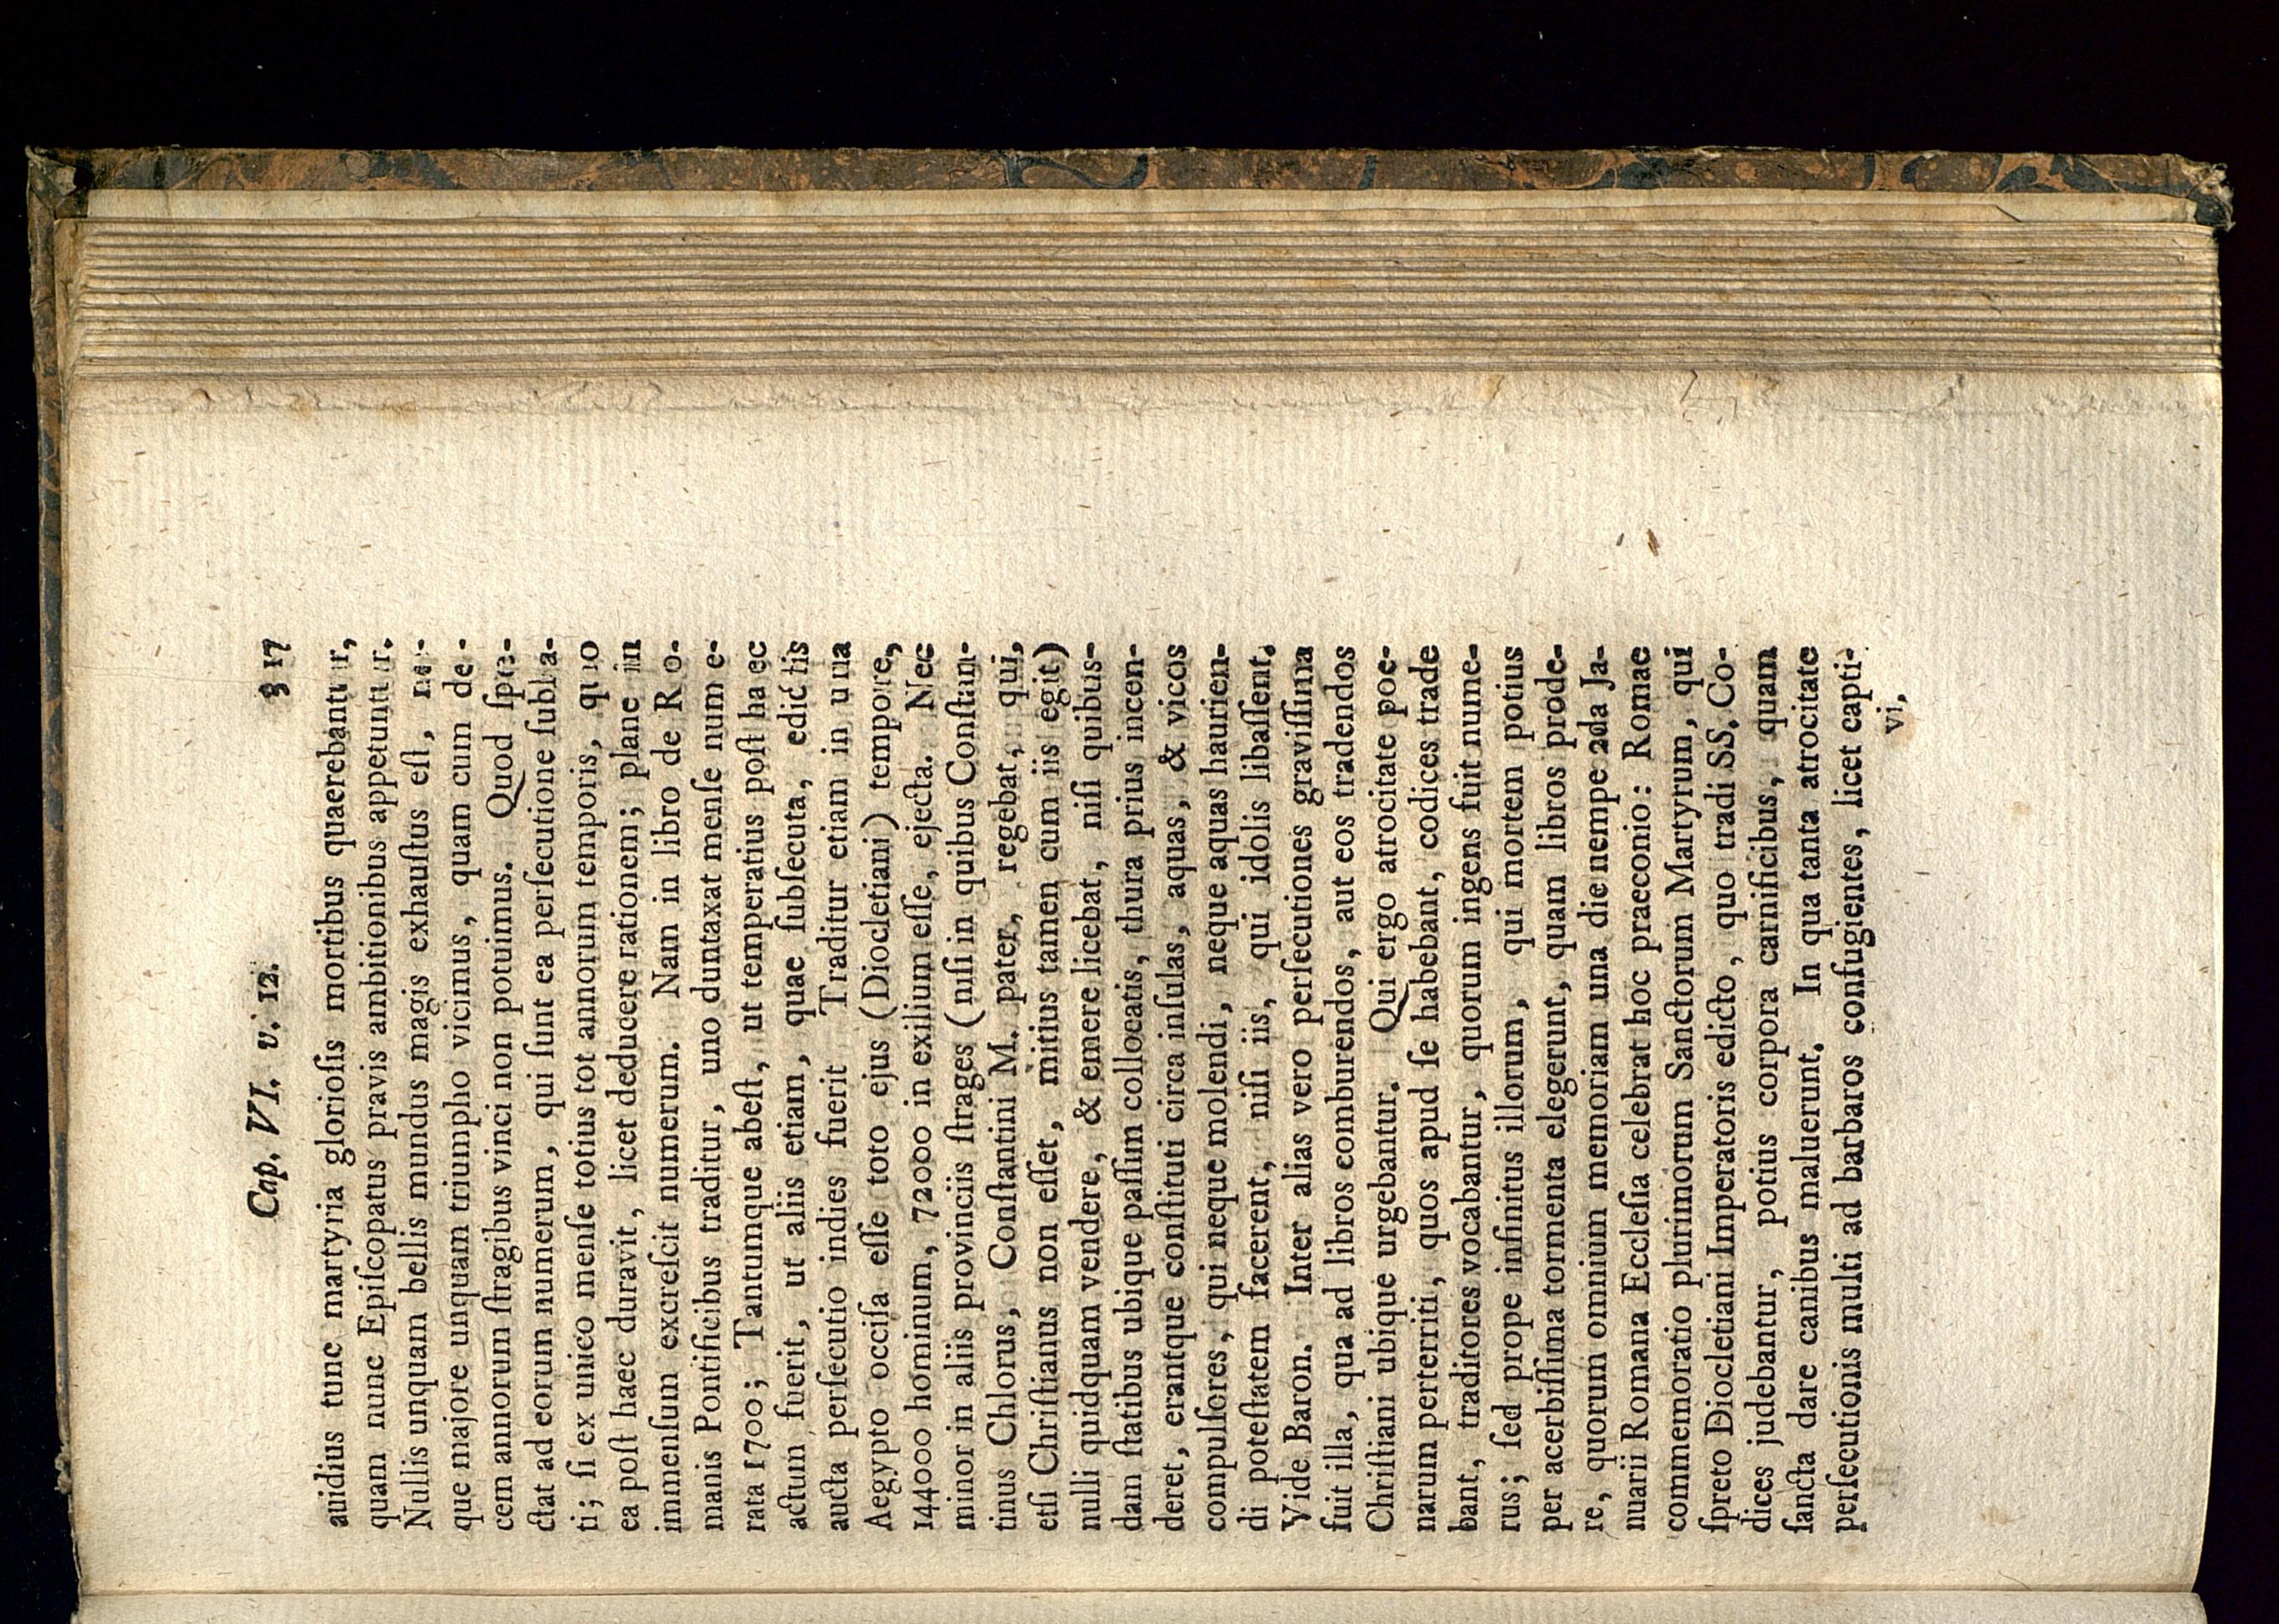 Cap. VI. v. 12. 317
auidius tunc martyria glorioſis mortibus quaerebantur,
quam nunc Epiſcopatus pravis ambitionibus appetuntur.
Nullis unquam bellis mundus magis exhauſtus eſt, ne-
que majore unquam triumpho vicimus, quam cum de-
cem annorum ſtragibus vinci non potuimus. Quod ſpe-
ctat ad eorum numerum, qui ſunt ea perſecutione ſubla-
ti; ſi ex unico menſe totius tot annorum temporis, quo
ea poſt haec duravit, licet deducere rationem; plane in
immenſum excreſcit numerum. Nam in libro de Ro-
manis Pontificibus traditur, uno duntaxat menſe nume-
rata 1700; Tantumque abeſt, ut temperatius poſt haec
actum fuerit, ut aliis etiam, quae ſubſecuta, edictis
aucta perſecutio indies fuerit Traditur etiam in una
Aegypto occiſa eſſe toto ejus (Diocletiani) tempore,
144000 hominum, 72000 in exilium eſſe, ejecta. Nec
minor in aliis provinciis ſtrages (niſi in quibus Conſtan-
tinus Chlorus, Conſtantini M. pater, regebat, qui,
etſi Chriſtianus non eſſet, mitius tamen cum iis egit)
nulli quidquam vendere, & emere licebat, niſi quibus-
dam ſtatibus ubique paſſim collocatis, thura prius incen-
deret, erantque conſtituti circa inſulas, aquas, & vicos
compulſores, qui neque molendi, neque aquas haurien-
di poteſtatem facerent, niſi iis, qui idolis libaſſent.
Vide Baron. Inter alias vero perſecutiones graviſſima
fuit illa, qua ad libros comburendos, aut eos tradendos
Chriſtiani ubique urgebantur. Qui ergo atrocitate poe-
narum perterriti, quos apud ſe habebant, codices trade
bant, traditores vocabantur, quorum ingens fuit nume-
rus; ſed prope infinitus illorum, qui mortem potius
per acerbiſſima tormenta elegerunt, quam libros prode-
re, quorum omnium memoriam una die nempe 2da Ja-
nuarii Romana Eccleſia celebrat hoc praeconio: Romae
commemoratio plurimorum Sanctorum Martyrum, qui
ſpreto Diocletiani Imperatoris edicto, quo tradi SS. Co-
dices judebantur, potius corpora carnificibus, quam
ſancta dare canibus maluerunt. In qua tanta atrocitate
perſecutionis multi ad barbaros confugientes, licet capti-
vi,